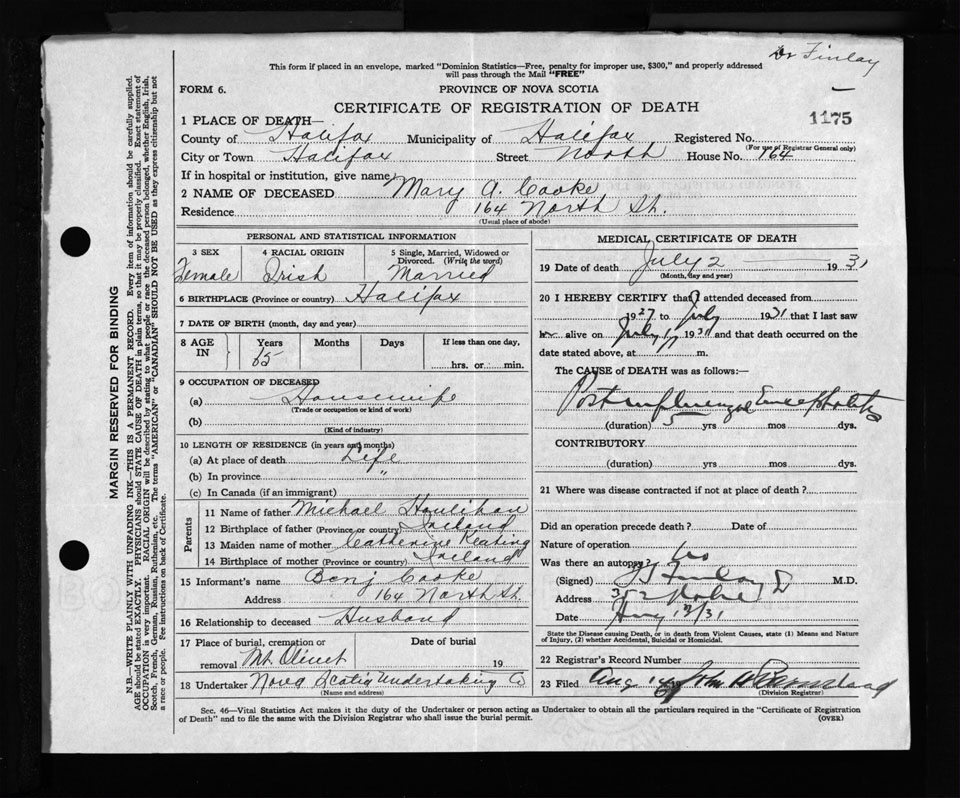 Dr Finlay
This form if placed in an envelope, marked "Dominion Statistics—Free, penalty for improper use, $300," and properly addressed
will pass through the Mail "FREE"
FORM 6.
PROVINCE OF NOVA SCOTIA
CERTIFICATE OF REGISTRATION OF DEATH
1175
1 PLACE OF DEATH—
County of Halifax Municipality of Halifax Registered No.
(For use of Registrar General only)
City or Town Halifax Street North House No. 164
If in hospital or institution, give name
2 NAME OF DECEASED Mary A. Cooke
Residence 164 North St.
(Usual place of abode)
PERSONAL AND STATISTICAL INFORMATION
3 SEX 4 RACIAL ORIGIN 5 Single, Married, Widowed or
Divorced. (Write the word)
Female Irish Married
6 BIRTHPLACE (Province or country) Halifax
7 DATE OF BIRTH (month, day and year)
8 AGE IN Years Months Days If less than one day,
65 hrs. or min.
9 OCCUPATION OF DECEASED
(a) Housewife
(Trade or occupation or kind of work)
(b)
(Kind of industry)
10 LENGTH OF RESIDENCE (in years and months)
(a) At place of death Life
(b) In province "
(c) In Canada (if an immigrant)
Parents
11 Name of father Michael Houlihan
12 Birthplace of father (Province or country) Ireland
13 Maiden name of mother Catherine Keating
14 Birthplace of mother (Province or country) Ireland
15 Informant's name Benj Cooke
Address 164 North St.
16 Relationship to deceased Husband
17 Place of burial, cremation or Date of burial
removal Mt. Olivet 19
18 Undertaker Nova Scotia Undertaking Co
(Name and address)
MEDICAL CERTIFICATE OF DEATH
19 Date of death July 2 1931
(Month, day and year)
20 I HEREBY CERTIFY that I attended deceased from
1927 to July 1931 that I last saw
alive on July 1 1931 and that death occurred on the
date stated above, at m.
The CAUSE of DEATH was as follows:—
Post influenzal Encephalitis
(duration) 5 yrs mos dys.
CONTRIBUTORY
(duration) yrs mos dys.
21 Where was disease contracted if not at place of death?
Did an operation precede death? Date of
Nature of operation
Was there an autopsy? no
(Signed) Finlay M.D.
Address
Date Aug /31
State the Disease causing Death, or in death from Violent Causes, state (1) Means and Nature
of Injury, (2) whether Accidental, Suicidal or Homicidal.
22 Registrar's Record Number
23 Filed Aug John
(Division Registrar)
Sec. 46—Vital Statistics Act makes it the duty of the Undertaker or person acting as Undertaker to obtain all the particulars required in the "Certificate of Registration
of Death" and to file the same with the Division Registrar who shall issue the burial permit. (OVER)
MARGIN RESERVED FOR BINDING
N.B.—WRITE PLAINLY WITH UNFADING INK—THIS IS A PERMANENT RECORD. Every item of information should be carefully supplied.
AGE should be stated EXACTLY. PHYSICIANS should STATE CAUSE OF DEATH in plain terms, so that it may be properly classified. Exact statement of
OCCUPATION is very important. RACIAL ORIGIN will be described by stating to what people or race the deceased person belonged, whether English, Irish,
Scotch, French, German, Russian, Ruthenian, etc. The terms "AMERICAN" or "CANADIAN" SHOULD NOT BE USED as they express citizenship but not
a race or people. Fee instructions on back of Certificate.